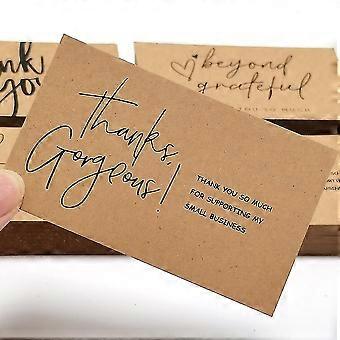 Thanks,
Gorgeous!
THANK YOU SO MUCH
FOR SUPPORTING MY
SMALL BUSINESS
beyond
grateful
YOU SO MUCH